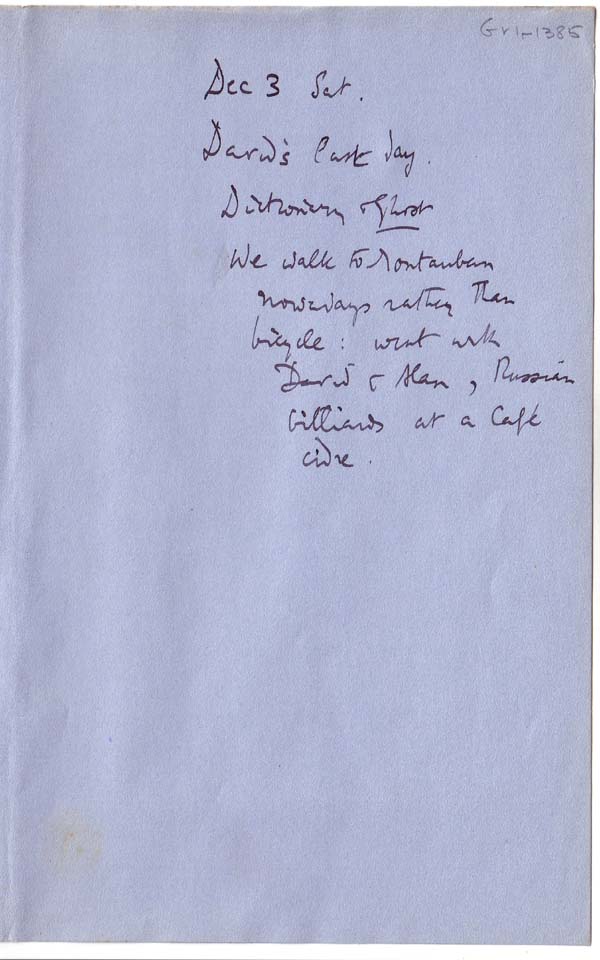 Gr1-1385
Dec 3 Sat.
David's last day.
Dictionary & Ghost
We walk to Montauban
nowadays rather than
bicycle: went with
David & Alan, Russian
billiards at a Café
cidre.